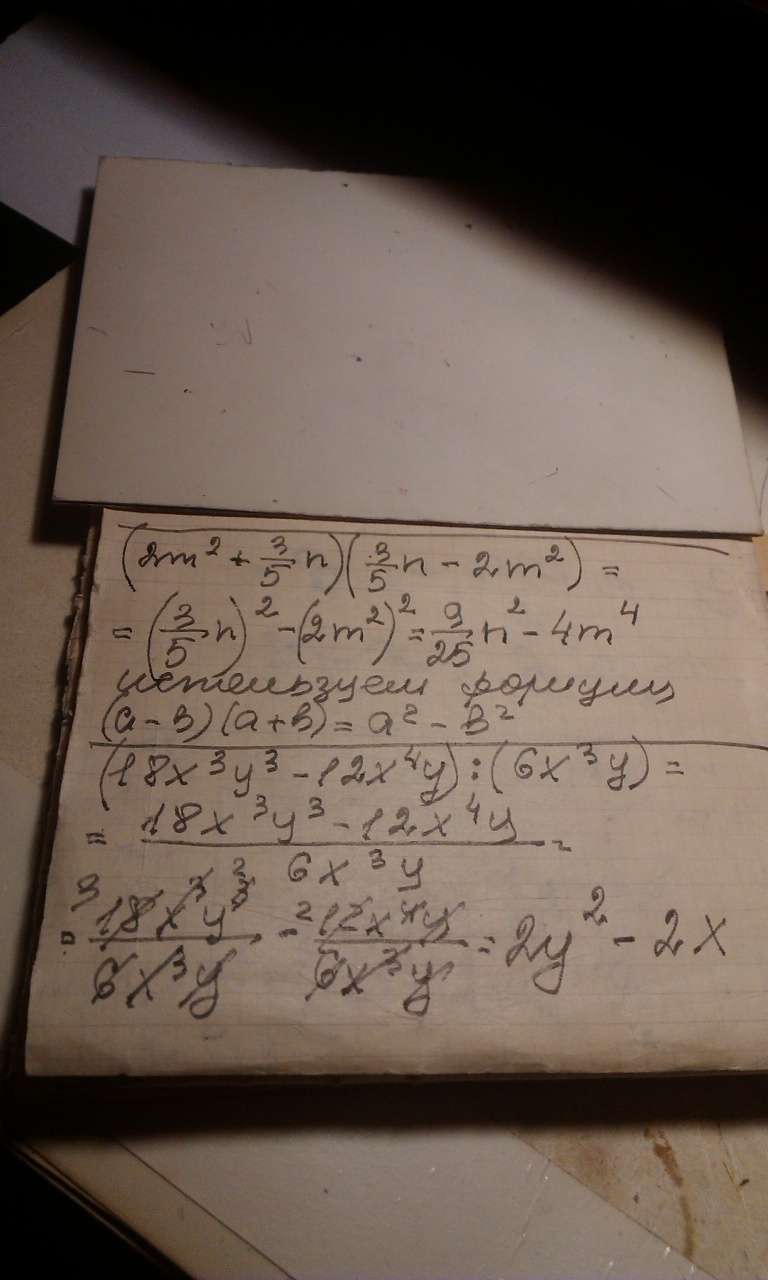 (2m² + 3/5 n)(3/5 n - 2m²) =
= (3/5 n)² - (2m²)² = 9/25 n² - 4m⁴
используем формулу
(a - в)(a + в) = a² - в²
(18x³y³ - 12x⁴y) : (6x³y) =
= (18x³y³ - 12x⁴y)/(6x³y) =
= 3 18x³y³ 2/(6x³y) - 2 12x⁴y/(6x³y) = 2y² - 2x